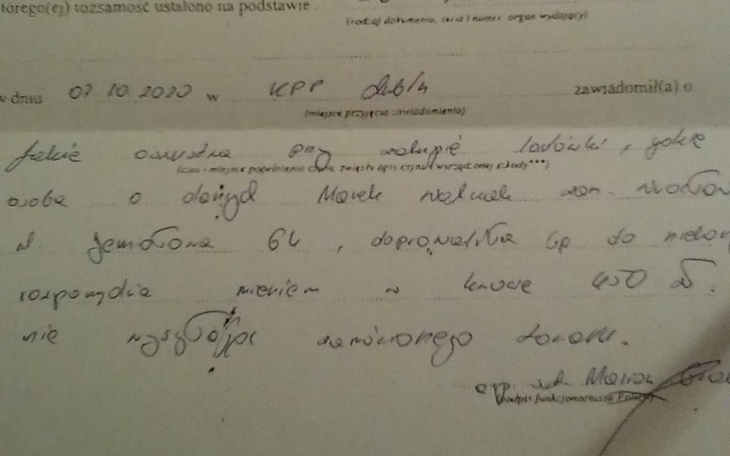 tórego(ej) tożsamość ustalono na podstawie .
(rodzaj dokumentu, seria i numer, organ wydający)
w dniu 07.10.2020 w KPP Lublin zawiadomił(a) o
(miejsce przyjęcia zawiadomienia)
fakcie oszustwa przy zakupie lodówki, gdzie
(czas i miejsce popełnienia czynu, zwięzły opis czynu i wyrządzonej szkody***)
osoba o danych Marek Walczak zam.
ul. Jemiołowa 64, doprowadziła do
rozporządzenia mieniem w kwocie 450 zł.
nie wysyłając zamówionego towaru.
(podpis funkcjonariusza Policji)